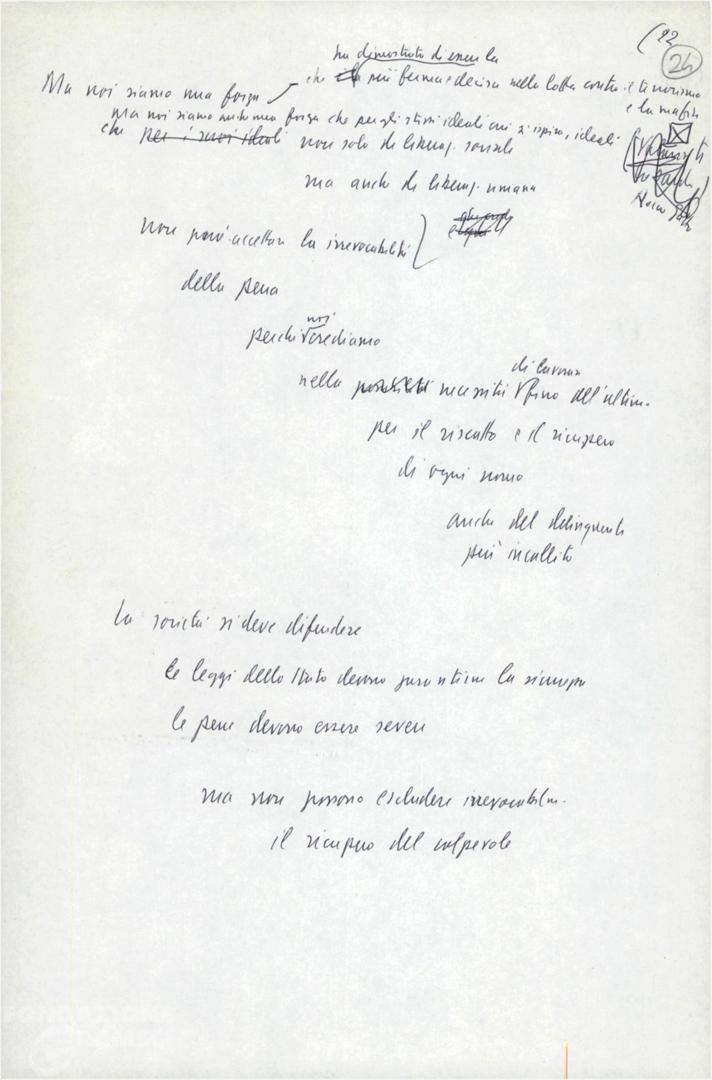 (22
24
ha dimostrato di essere la
Ma noi siamo una forza che è la più ferma e decisa nella lotta contro il terrorismo
e la mafia
Ma noi siamo anche una forza che per gli stessi ideali cui si ispira, ideali
che per i suoi ideali non solo di liberaz. sociale
ma anche di liberaz. umana
non può accettare la irrevocabilità
della pena
noi
perché crediamo
di lavorare
nella possibilità necessità fino all'ultimo
per il riscatto e il ricupero
di ogni uomo
anche del delinquente
più incallito
La società si deve difendere
le leggi dello Stato devono garantirne la sicurezza
le pene devono essere severe
ma non possono escludere irrevocabilm.
il ricupero del colpevole